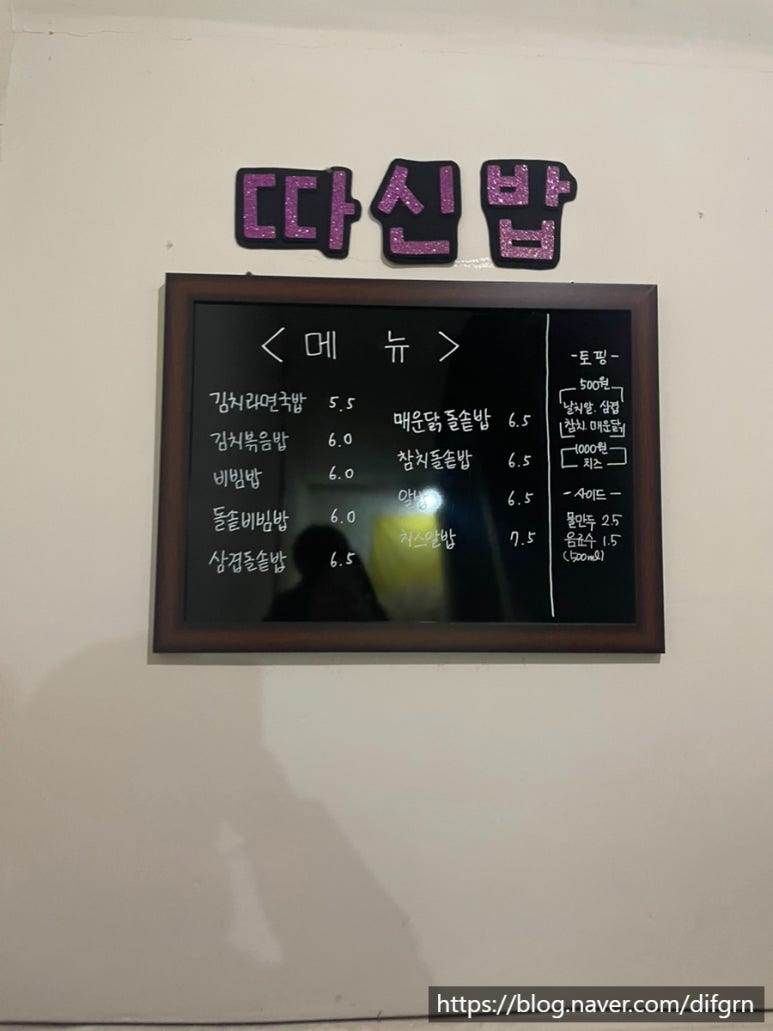 따신밥
<메 뉴>
김치라면국밥 5.5
김치볶음밥 6.0
비빔밥 6.0
돌솥비빔밥 6.0
삼겹돌솥밥 6.5
매운닭돌솥밥 6.5
참치돌솥밥 6.5
알밥 6.5
치즈알밥 7.5
-토핑-
500원
날치알. 삼겹
참치. 매운닭
1000원
치즈
-사이드-
물만두 2.5
음료수 1.5
(500ml)
https://blog.naver.com/difgrn